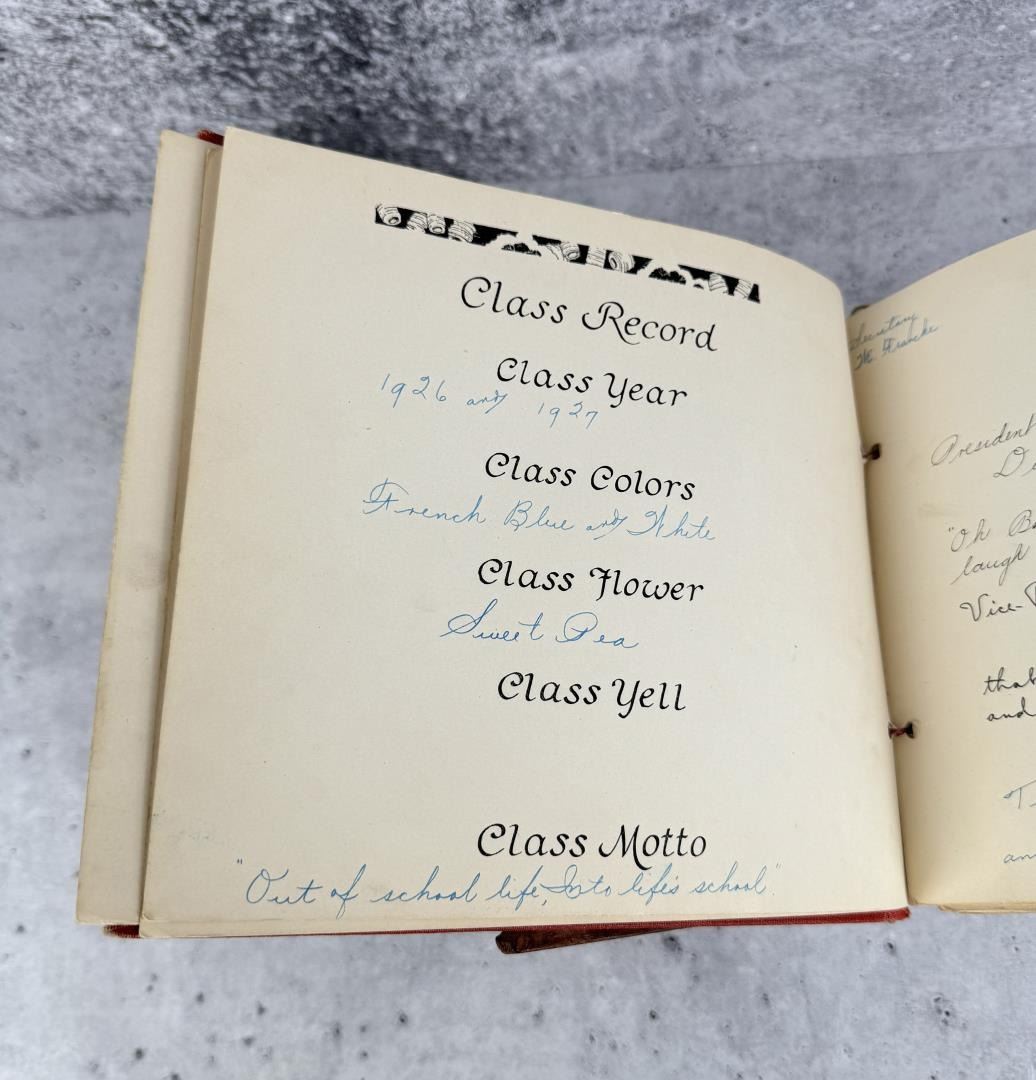 Class Record
Class Year
1926 and 1927
Class Colors
French Blue and White
Class Flower
Sweet Pea
Class Yell
Class Motto
"Out of school life, Into life's school"
Secretary
President
"Oh
laugh
Vice-
that
and